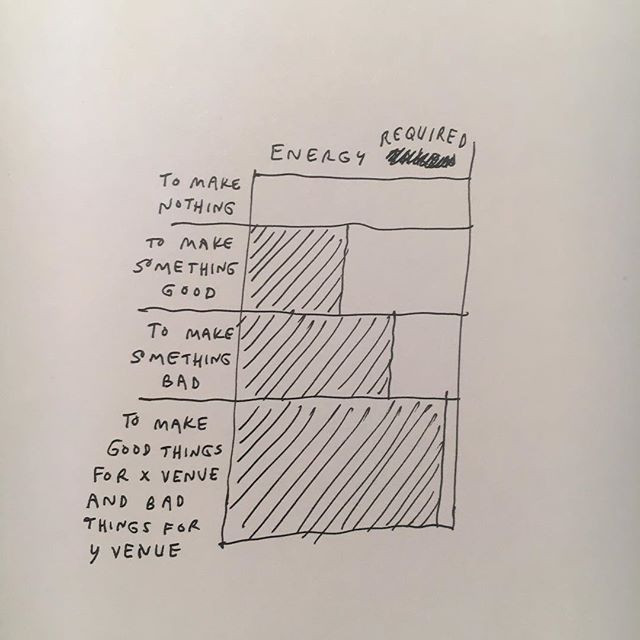 REQUIRED
ENERGY
TO MAKE
NOTHING
TO MAKE
SOMETHING
GOOD
TO MAKE
SMETHING
BAD
TO MAKE
GOOD THINGS
FOR X VENUE
AND BAD
THINGS FOR
Y VENUE